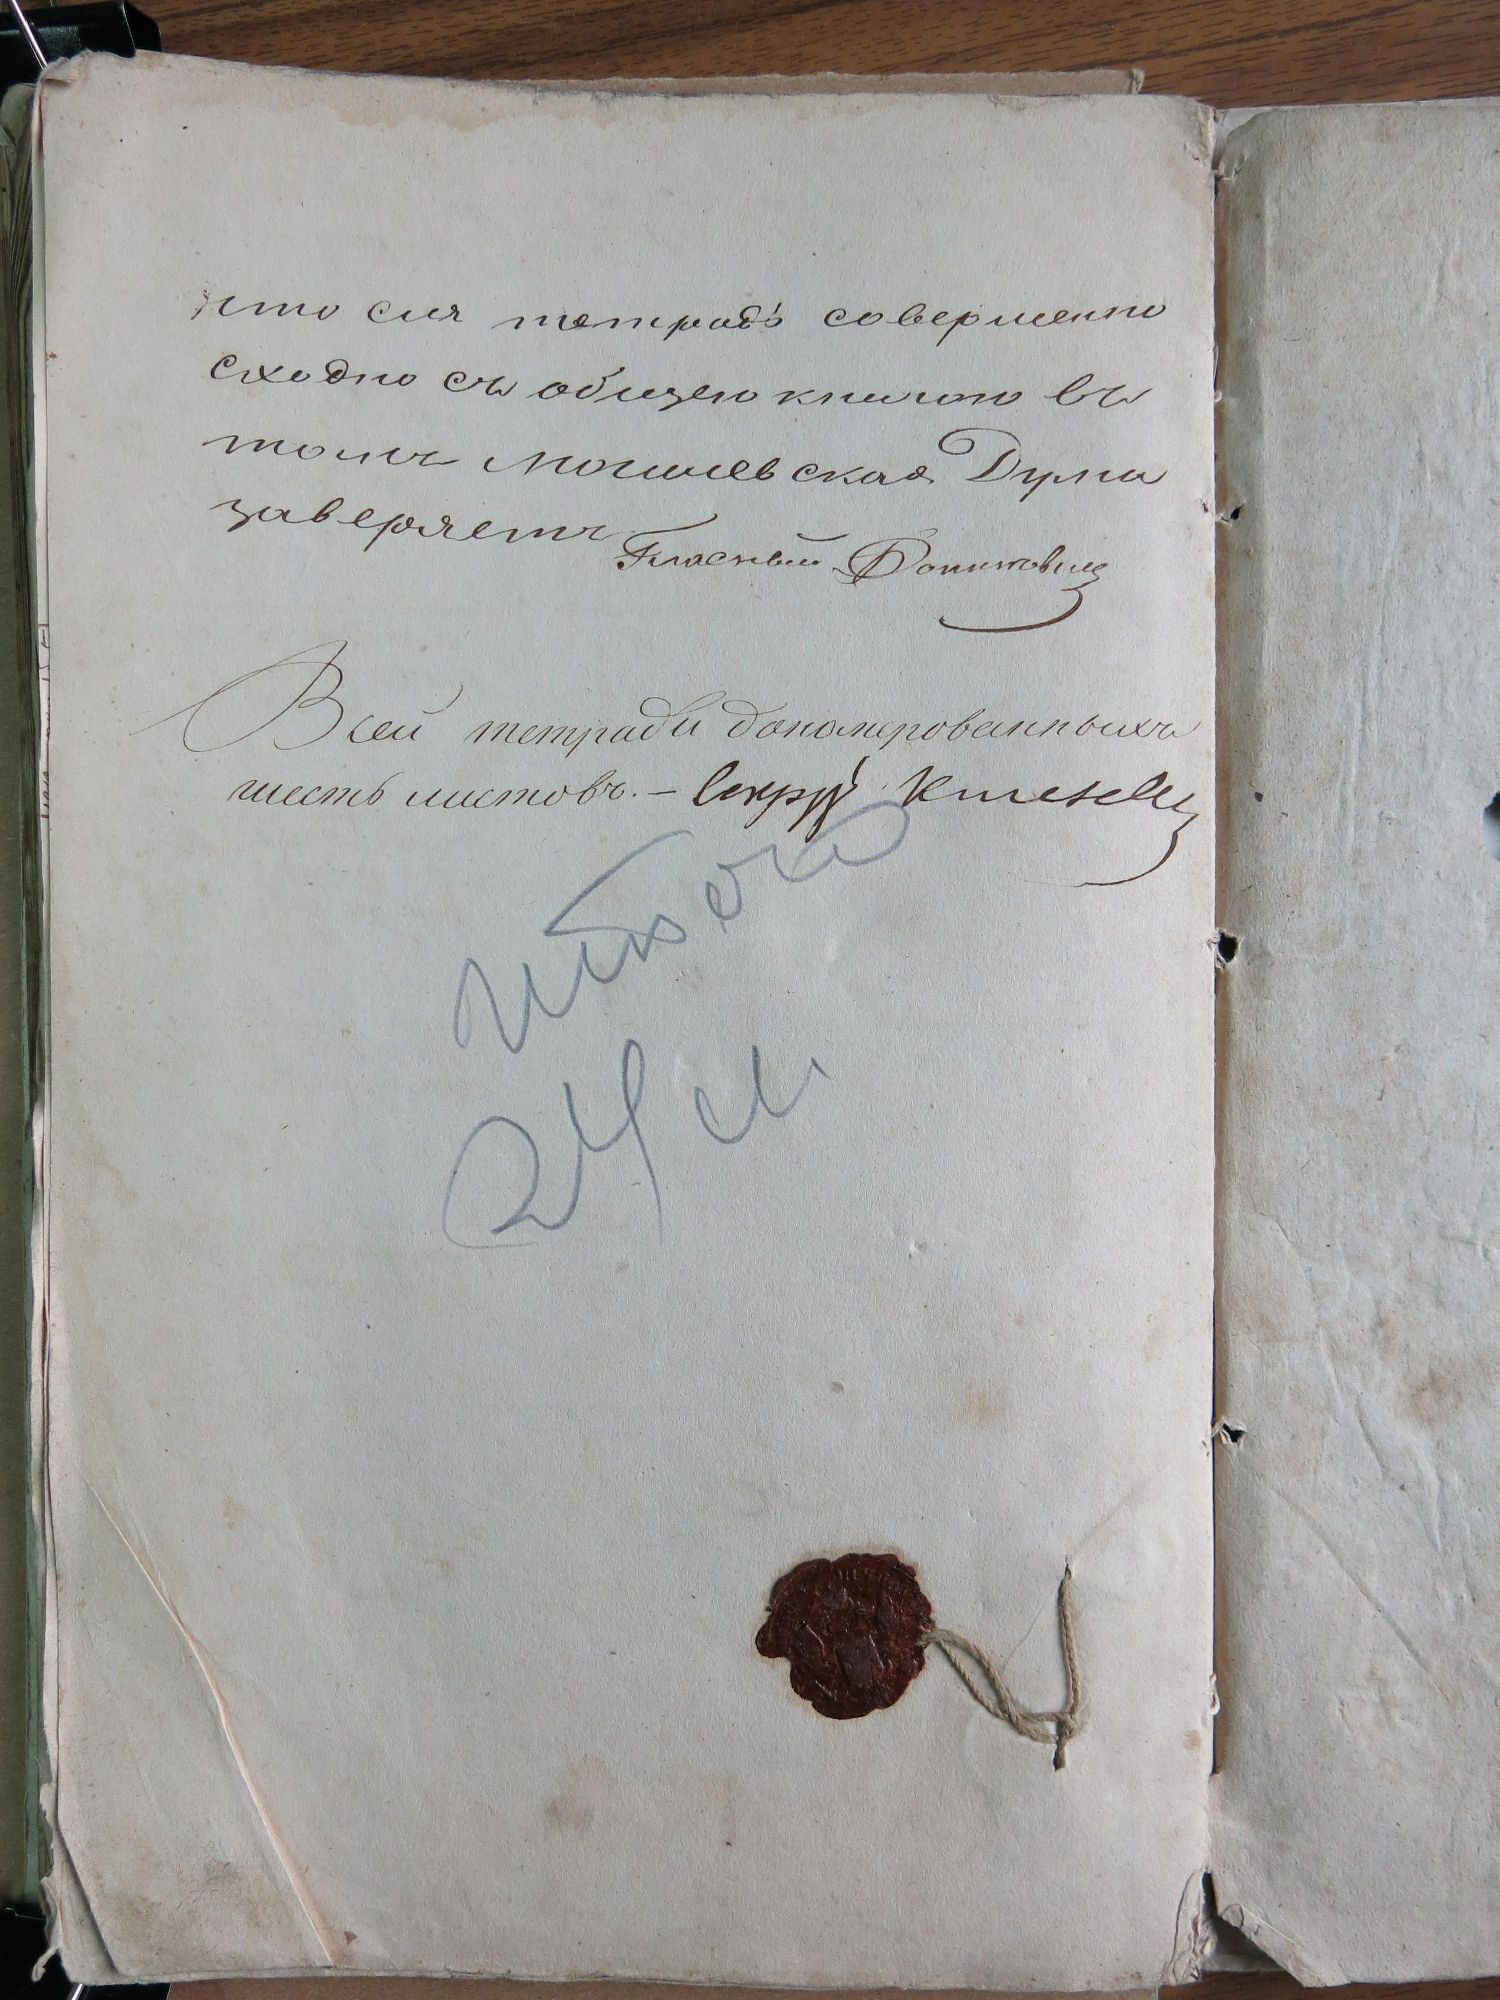 что сия тетрадь совершенно
сходно съ общею книгою въ
томъ Могилевская Дума
заверяетъ
Гласный
В сей тетради заномерованныхъ
шесть листовъ. –
итого
24 л.